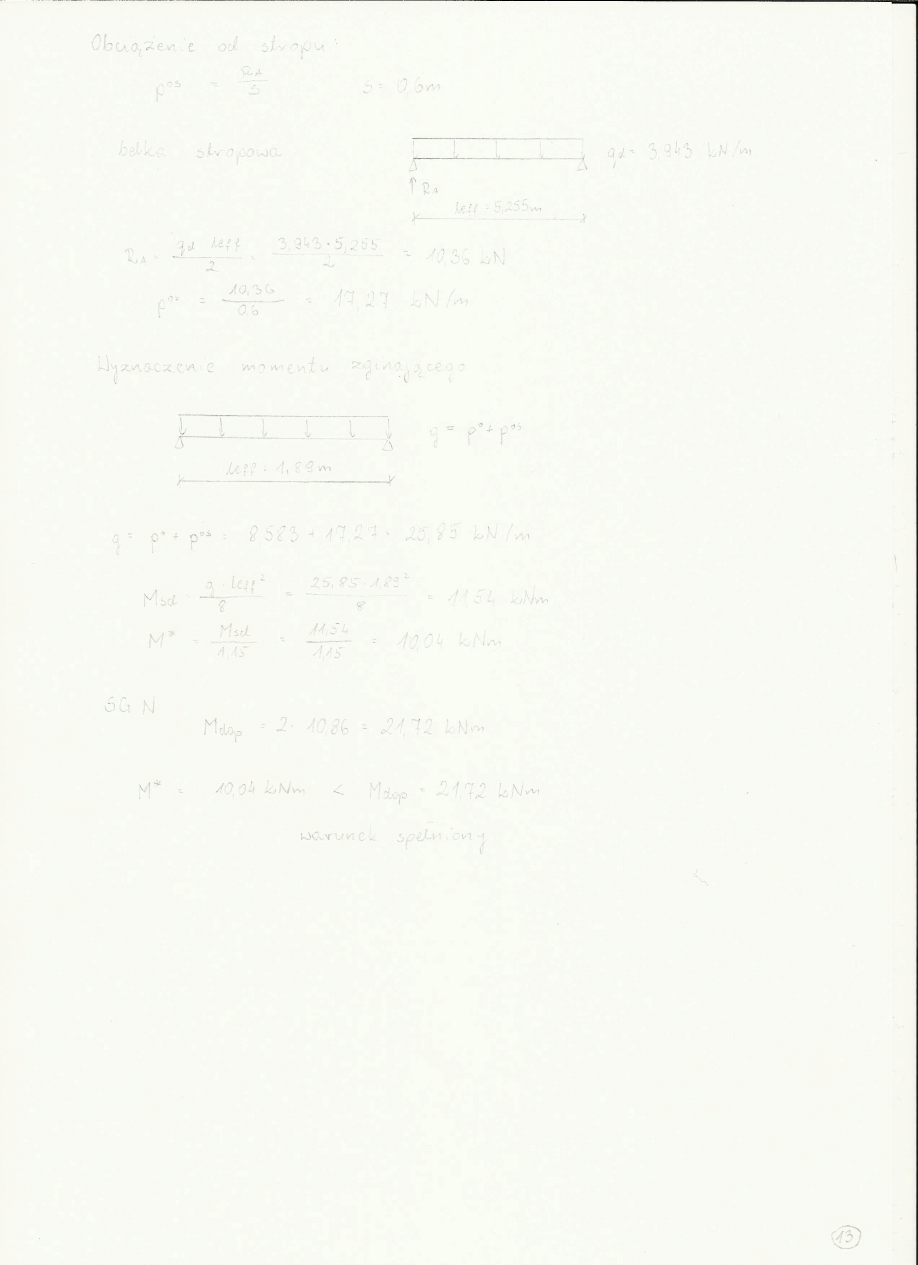 Obciążenie od stropu:
p^os = R_A / s   s = 0,6m
belka stropowa   q_d = 3,943 kN/m
↑ R_A
leff = 5,255m
R_A = q_d · leff / 2 = 3,943 · 5,255 / 2 = 10,36 kN
p^os = 10,36 / 0,6 = 17,27 kN/m
Wyznaczenie momentu zginającego
q = p^o + p^os
leff = 1,89m
q = p^o + p^os = 8,583 + 17,27 = 25,85 kN/m
Msd = q · leff² / 8 = 25,85 · 1,89² / 8 = 11,54 kNm
M* = Msd / 1,15 = 11,54 / 1,15 = 10,04 kNm
SGN
Mdop = 2 · 10,86 = 21,72 kNm
M* = 10,04 kNm < Mdop = 21,72 kNm
warunek spełniony
13